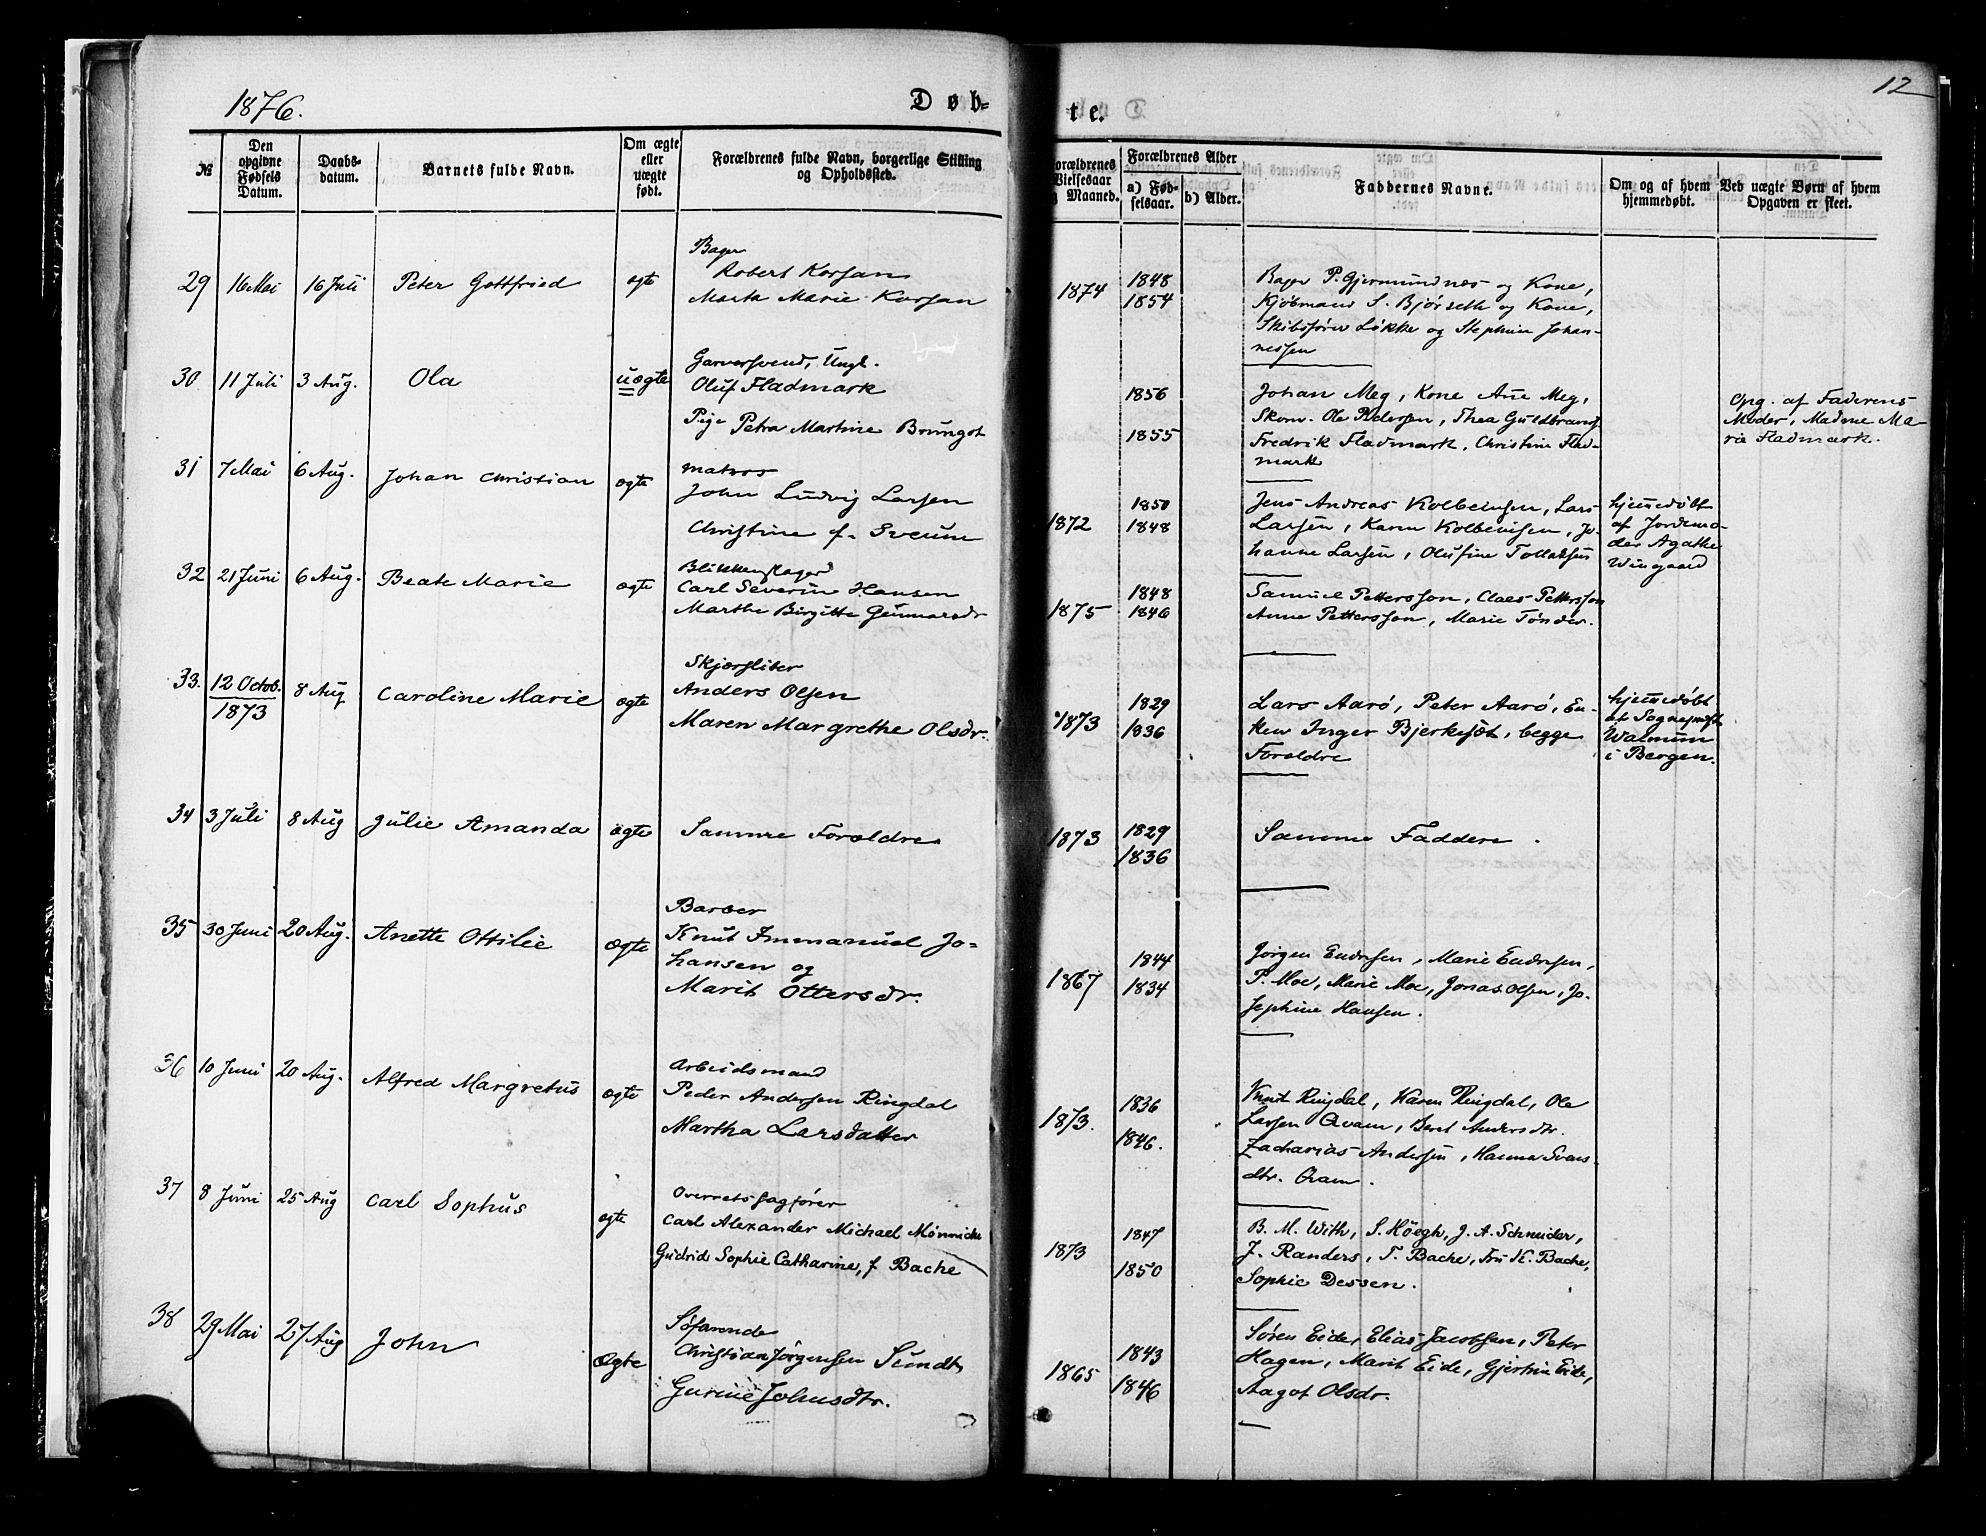 1876.
Døb-
te.
12
№
Den opgivne Fødsels Datum.
Daabs-datum.
Barnets fulde Navn.
Om ægte eller uægte født.
Forældrenes fulde Navn, borgerlige Stilling og Opholdssted.
Forældrenes Vielsesaar og Maaned.
Forældrenes Alder
a) Fødselsaar.
b) Alder.
Faddernes Navne.
Om og af hvem hjemmedøbt.
Ved uægte Børn af hvem Opgaven er skeet.
29 16 Mai 16 Juli Peter Gottfried ægte
Bager
Robert Korsan
Marta Marie Korsan
1874
1848
1854
Bager P. Gjermundnæs og Kone,
Kjøbmand S. Bjørseth og Kone,
Skibsfører Løkke og Stephine Johan-
nessen
30. 11 Juli 3 Aug. Ola uægte
Garversvend, Ungk.
Oluf Fladmark
Pige Petra Martine Brungot
1856
1855
Johan Meg, Kone Ane Meg,
Skom. Ole Pedersen, Thea Guldbrands
Fredrik Fladmark, Christine Flad-
mark
Opg. af Faderens
Moder, Madme Ma-
rie Fladmark.
31 7 Mai 6 Aug. Johan Christian ægte
matros
John Ludvig Larsen
Christine f. Sveum
1872
1850
1848
Jens Andreas Kolbeinsen, Lars
Larsen, Karen Kolbeinsen, Jo-
hanne Larsen, Olufine Tollaksen
hjemmedøbt
af Jordemo-
der Agathe
Wingaard
32 21 Juni 6 Aug. Beate Marie ægte
Blikkenslager
Carl Severin Hansen
Marthe Birgitte Gunnarsdr
1875
1848
1846
Samuel Pettersson, Claes Pettersson
Anne Pettersson, Marie Tønder.
33. 12 Octob. 1873 8 Aug Caroline Marie ægte
Skjærsliber
Anders Olsen
Maren Margrethe Olsdr.
1873
1829
1836
Lars Aarø, Peter Aarø, En-
ken Inger Bjerkesæt, begge
Forældre
hjemmedøbt
af Sognepræst
Walnum
i Bergen.
34 3 Juli 8 Aug Julie Amanda ægte
Samme Forældre
1873
1829
1836
Samme Faddere.
35 30 Juni 20 Aug. Anette Ottilie ægte
Barber
Knut Immanuel Jo-
hansen og
Marit Ottersdr.
1867
1844
1834
Jørgen Endresen, Marie Endresen,
P. Moe, Marie Moe, Jonas Olsen, Jo-
sephine Hansen.
36 10 Juni 20 Aug. Alfred Margretus ægte
Arbeidsmand
Peder Andersen Ringdal
Martha Larsdatter
1873.
1836
1846.
Knut Ringdal, Karen Ringdal, Ole
Larsen Qvam, Beret Andersdtr.
Zacharias Andersen, Hanna Svens-
dtr. Qvam.
37 8 Juni 25 Aug Carl Sophus ægte
Overretssagfører
Carl Alexander Michael Mönnich
Gudrid Sophie Catharine, f Bache
1873
1847
1850
B. M. With, S. Höegh, J. A. Schneider,
J. Randers, T. Bache, Fru K. Bache,
Sophie Dessen.
38 29 Mai 27 Aug John Ægte
Søfarende
Christian Jörgensen Sundt,
Gurine Johnsdtr.
1865
1843
1846
Søren Eide, Elias Jacobsen, Peter
Hagen, Marit Eide, Gjertrin Eide,
Aagot Olsdr.